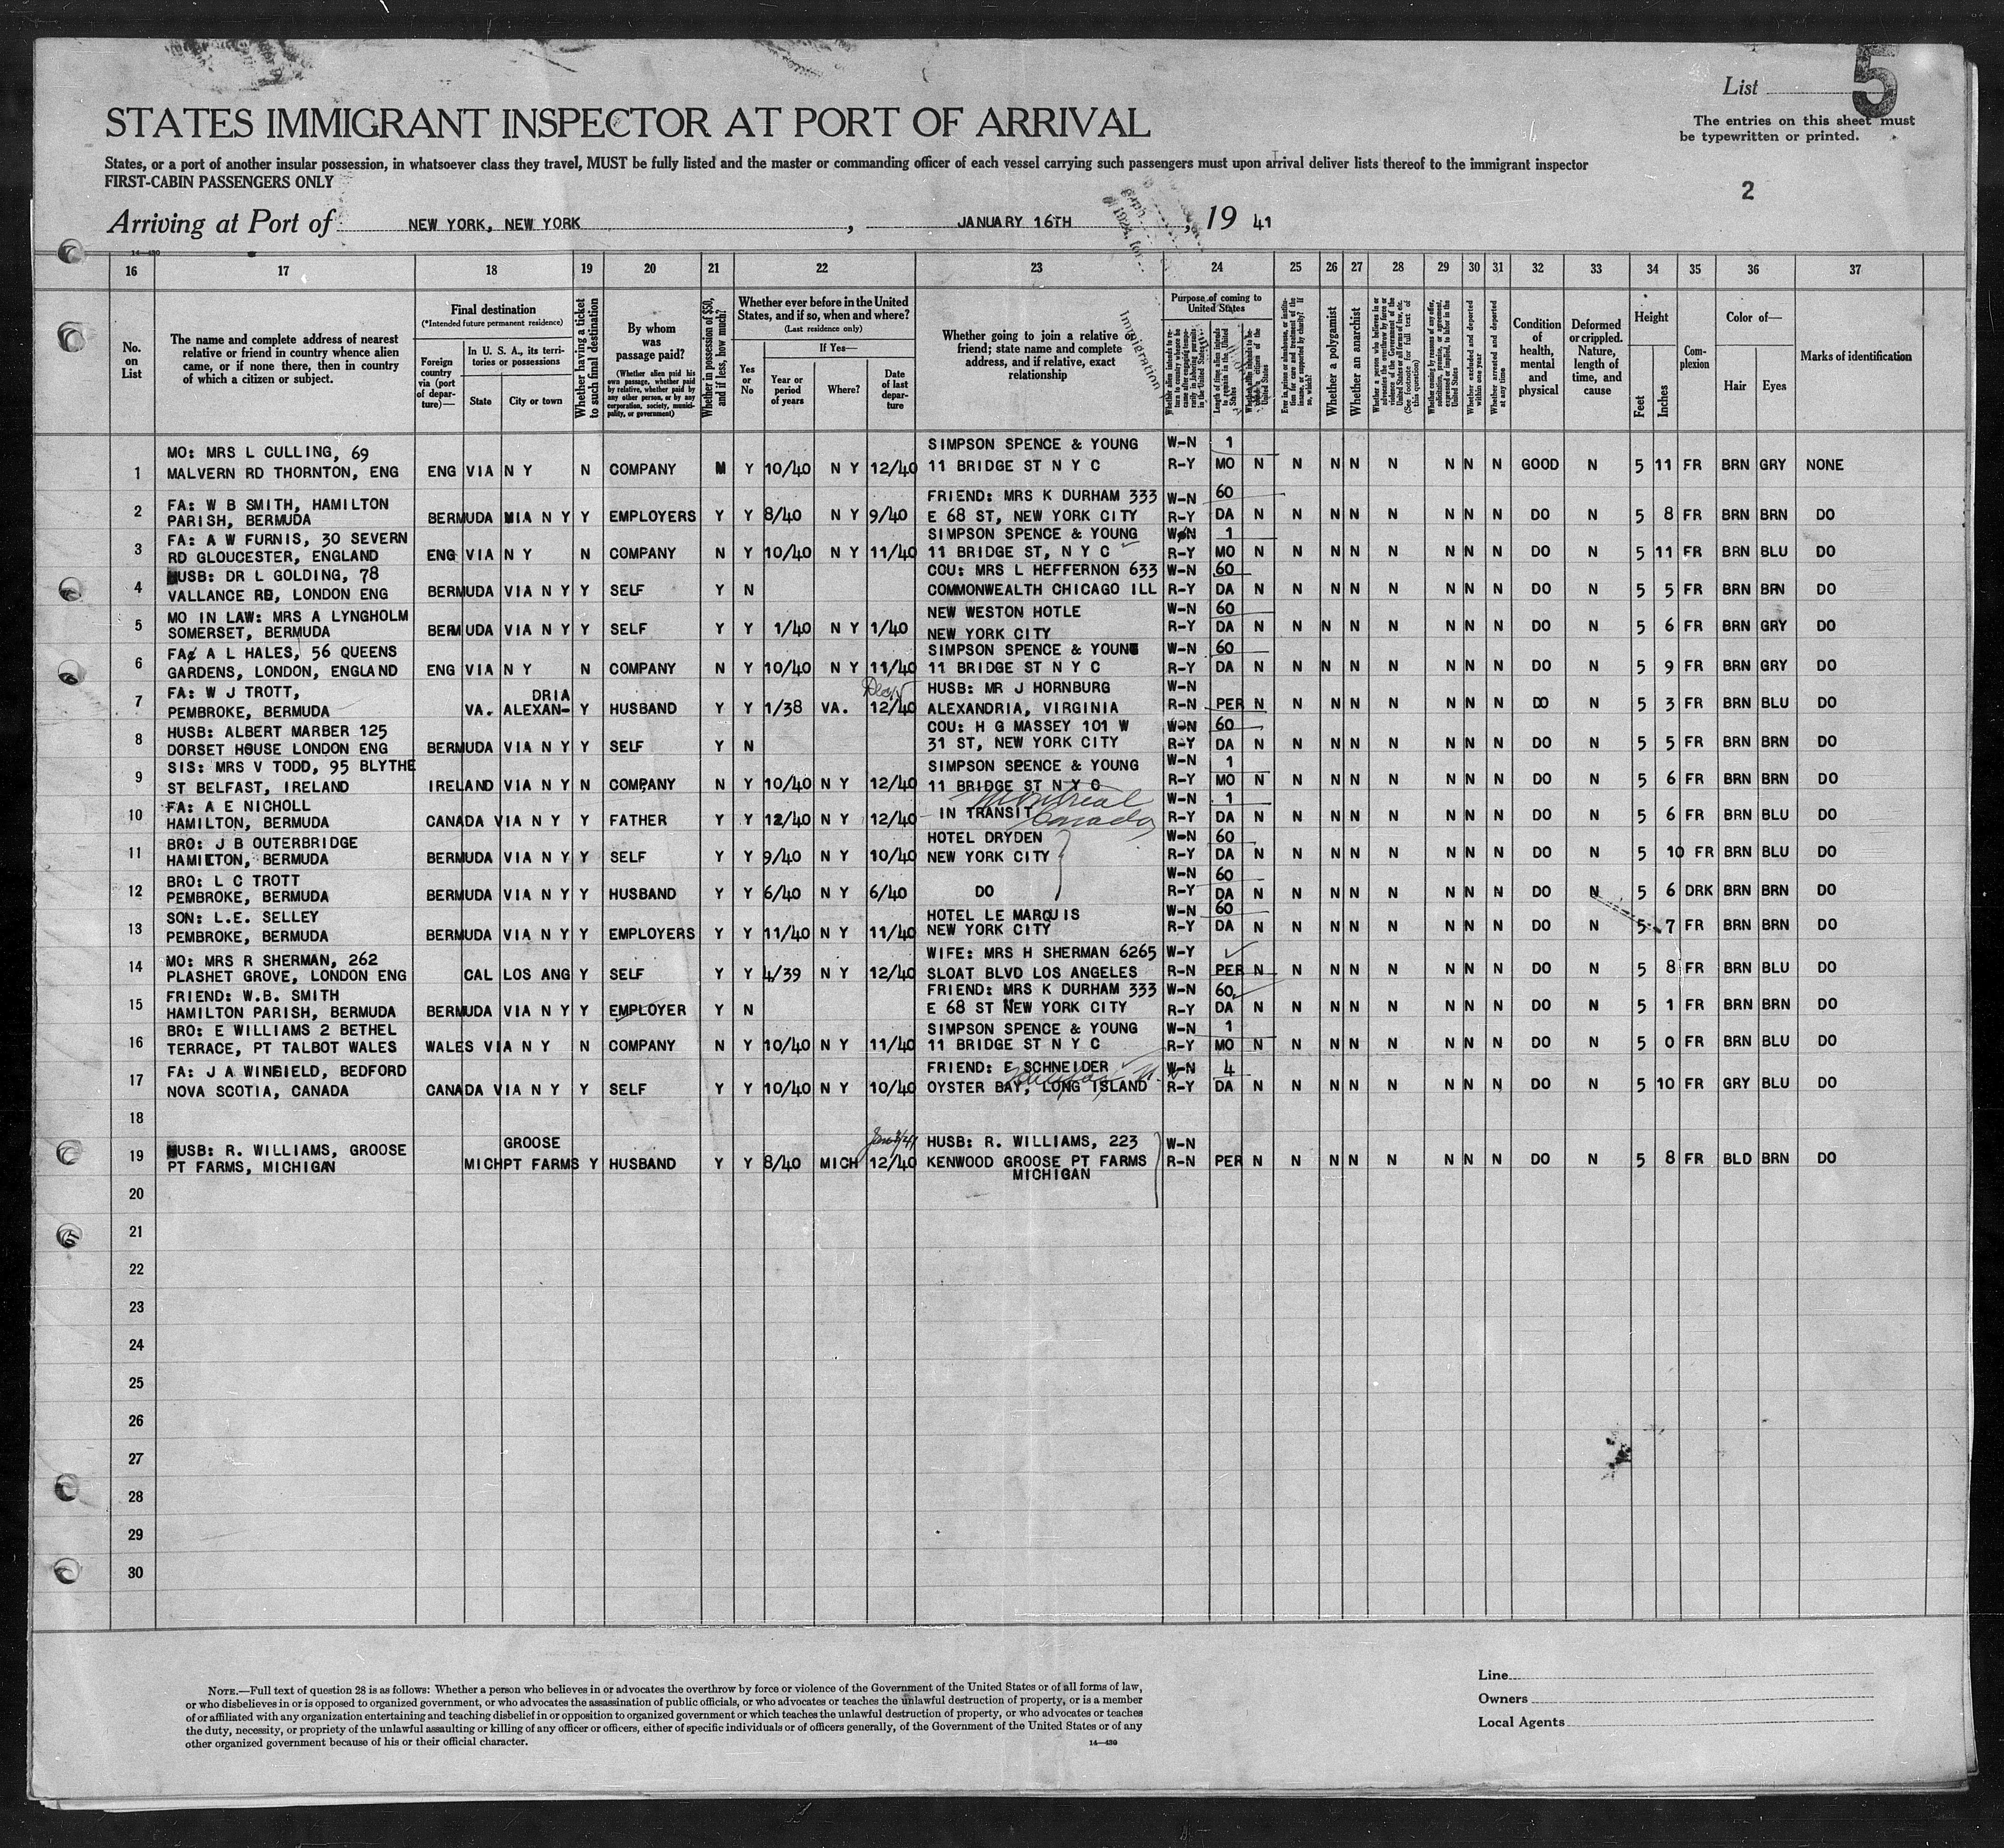 List
5
STATES IMMIGRANT INSPECTOR AT PORT OF ARRIVAL
The entries on this sheet must
be typewritten or printed.
States, or a port of another insular possession, in whatsoever class they travel, MUST be fully listed and the master or commanding officer of each vessel carrying such passengers must upon arrival deliver lists thereof to the immigrant inspector
FIRST-CABIN PASSENGERS ONLY
2
Arriving at Port of NEW YORK, NEW YORK, JANUARY 16TH, 19 41
14—430
16 17 18 19 20 21 22 23 24 25 26 27 28 29 30 31 32 33 34 35 36 37
No. on List
The name and complete address of nearest relative or friend in country whence alien came, or if none there, then in country of which a citizen or subject.
Final destination
(*Intended future permanent residence)
Foreign country via (port of departure)—
In U. S. A., its territories or possessions
State
City or town
Whether having a ticket to such final destination
By whom was passage paid?
(Whether alien paid his own passage, whether paid by relative, whether paid by any other person, or by any corporation, society, municipality, or government)
Whether in possession of $50, and if less, how much?
Whether ever before in the United States, and if so, when and where?
(Last residence only)
Yes or No
If Yes—
Year or period of years
Where?
Date of last departure
Whether going to join a relative or friend; state name and complete address, and if relative, exact relationship
Purpose of coming to United States
Length of time alien intends to remain in the United States
Whether a polygamist
Whether an anarchist
(See footnote for full text of this question)
Whether excluded and deported within one year
Whether arrested and deported at any time
Condition of health, mental and physical
Deformed or crippled. Nature, length of time, and cause
Height
Feet
Inches
Complexion
Color of—
Hair
Eyes
Marks of identification
Immigration
MO: MRS L CULLING, 69 SIMPSON SPENCE & YOUNG W-N 1
1 MALVERN RD THORNTON, ENG ENG VIA N Y N COMPANY Y 10/40 N Y 12/40 11 BRIDGE ST N Y C R-Y MO N N N N N N N N GOOD N 5 11 FR BRN GRY NONE
FA: W B SMITH, HAMILTON FRIEND: MRS K DURHAM 333 W-N 60
2 PARISH, BERMUDA BERMUDA VIA N Y Y EMPLOYERS Y Y 8/40 N Y 9/40 E 68 ST, NEW YORK CITY R-Y DA N N N N N N N N DO N 5 8 FR BRN BRN DO
FA: A W FURNIS, 30 SEVERN SIMPSON SPENCE & YOUNG W-N 1
3 RD GLOUCESTER, ENGLAND ENG VIA N Y N COMPANY N Y 10/40 N Y 11/40 11 BRIDGE ST, N Y C R-Y MO N N N N N N N N DO N 5 11 FR BRN BLU DO
HUSB: DR L GOLDING, 78 COU: MRS L HEFFERNON 633 W-N 60
4 VALLANCE RD, LONDON ENG BERMUDA VIA N Y Y SELF Y N COMMONWEALTH CHICAGO ILL R-Y DA N N N N N N N N DO N 5 5 FR BRN BRN DO
MO IN LAW: MRS A LYNGHOLM NEW WESTON HOTLE W-N 60
5 SOMERSET, BERMUDA BERMUDA VIA N Y Y SELF Y Y 1/40 N Y 1/40 NEW YORK CITY R-Y DA N N N N N N N N DO N 5 6 FR BRN GRY DO
FA: A L HALES, 56 QUEENS SIMPSON SPENCE & YOUNG W-N 60
6 GARDENS, LONDON, ENGLAND ENG VIA N Y N COMPANY N Y 10/40 N Y 11/40 11 BRIDGE ST N Y C R-Y DA N N N N N N N N DO N 5 9 FR BRN GRY DO
FA: W J TROTT, DRIA HUSB: MR J HORNBURG W-N
7 PEMBROKE, BERMUDA VA. ALEXAN- Y HUSBAND Y Y 1/38 VA. 12/40 ALEXANDRIA, VIRGINIA R-N PER N N N N N N N N DO N 5 3 FR BRN BLU DO
HUSB: ALBERT MARBER 125 COU: H G MASSEY 101 W W-N 60
8 DORSET HOUSE LONDON ENG BERMUDA VIA N Y Y SELF Y N 31 ST, NEW YORK CITY R-Y DA N N N N N N N N DO N 5 5 FR BRN BRN DO
SIS: MRS V TODD, 95 BLYTHE SIMPSON SPENCE & YOUNG W-N 1
9 ST BELFAST, IRELAND IRELAND VIA N Y N COMPANY N Y 10/40 N Y 12/40 11 BRIDGE ST N Y C R-Y MO N N N N N N N N DO N 5 6 FR BRN BRN DO
FA: A E NICHOLL Montreal W-N 1
10 HAMILTON, BERMUDA CANADA VIA N Y Y FATHER Y Y 12/40 N Y 12/40 IN TRANSIT Canada R-Y DA N N N N N N N N DO N 5 6 FR BRN BLU DO
BRO: J B OUTERBRIDGE HOTEL DRYDEN W-N 60
11 HAMILTON, BERMUDA BERMUDA VIA N Y Y SELF Y Y 9/40 N Y 10/40 NEW YORK CITY R-Y DA N N N N N N N N DO N 5 10 FR BRN BLU DO
BRO: L C TROTT W-N 60
12 PEMBROKE, BERMUDA BERMUDA VIA N Y Y HUSBAND Y Y 6/40 N Y 6/40 DO R-Y DA N N N N N N N N DO N 5 6 DRK BRN BRN DO
SON: L.E. SELLEY HOTEL LE MARQUIS W-N 60
13 PEMBROKE, BERMUDA BERMUDA VIA N Y Y EMPLOYERS Y Y 11/40 N Y 11/40 NEW YORK CITY R-Y DA N N N N N N N N DO N 5 7 FR BRN BRN DO
MO: MRS R SHERMAN, 262 WIFE: MRS H SHERMAN 6265 W-Y
14 PLASHET GROVE, LONDON ENG CAL LOS ANG Y SELF Y Y 4/39 N Y 12/40 SLOAT BLVD LOS ANGELES R-N PER N N N N N N N N DO N 5 8 FR BRN BLU DO
FRIEND: W.B. SMITH FRIEND: MRS K DURHAM 333 W-N 60
15 HAMILTON PARISH, BERMUDA BERMUDA VIA N Y Y EMPLOYER Y N E 68 ST NEW YORK CITY R-Y DA N N N N N N N N DO N 5 1 FR BRN BRN DO
BRO: E WILLIAMS 2 BETHEL SIMPSON SPENCE & YOUNG W-N 1
16 TERRACE, PT TALBOT WALES WALES VIA N Y N COMPANY N Y 10/40 N Y 11/40 11 BRIDGE ST N Y C R-Y MO N N N N N N N N DO N 5 0 FR BRN BLU DO
FA: J A WINFIELD, BEDFORD FRIEND: E SCHNEIDER W-N 4
17 NOVA SCOTIA, CANADA CANADA VIA N Y Y SELF Y Y 10/40 N Y 10/40 OYSTER BAY, LONG ISLAND R-Y DA N N N N N N N N DO N 5 10 FR GRY BLU DO
18
GROOSE HUSB: R. WILLIAMS, 223 W-N
19 HUSB: R. WILLIAMS, GROOSE PT FARMS, MICHIGAN MICH PT FARMS Y HUSBAND Y Y 8/40 MICH 12/40 KENWOOD GROOSE PT FARMS R-N PER N N N N N N N N DO N 5 8 FR BLD BRN DO
MICHIGAN
20
21
22
23
24
25
26
27
28
29
30
NOTE.—Full text of question 28 is as follows: Whether a person who believes in or advocates the overthrow by force or violence of the Government of the United States or of all forms of law,
or who disbelieves in or is opposed to organized government, or who advocates the assassination of public officials, or who advocates or teaches the unlawful destruction of property, or is a member
of or affiliated with any organization entertaining and teaching disbelief in or opposition to organized government or which teaches the unlawful destruction of property, or who advocates or teaches
the duty, necessity, or propriety of the unlawful assaulting or killing of any officer or officers, either of specific individuals or of officers generally, of the Government of the United States or of any
other organized government because of his or their official character.
14—430
Line
Owners
Local Agents